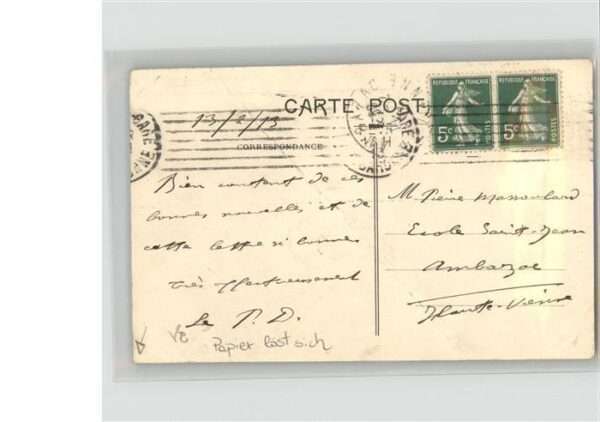 13/2/13
CARTE POSTALE
CORRESPONDANCE
REPUBLIQUE FRANÇAISE
5c POSTES
REPUBLIQUE FRANÇAISE
5c POSTES
GARE
Bien content de ces
bonnes nouvelles et de
cette lettre si bonne
très affectueusement
Le P. D.
M. Pierre
Ecole Saint-Jean
Ambazac
Haute-Vienne
V2
Papier löst sich